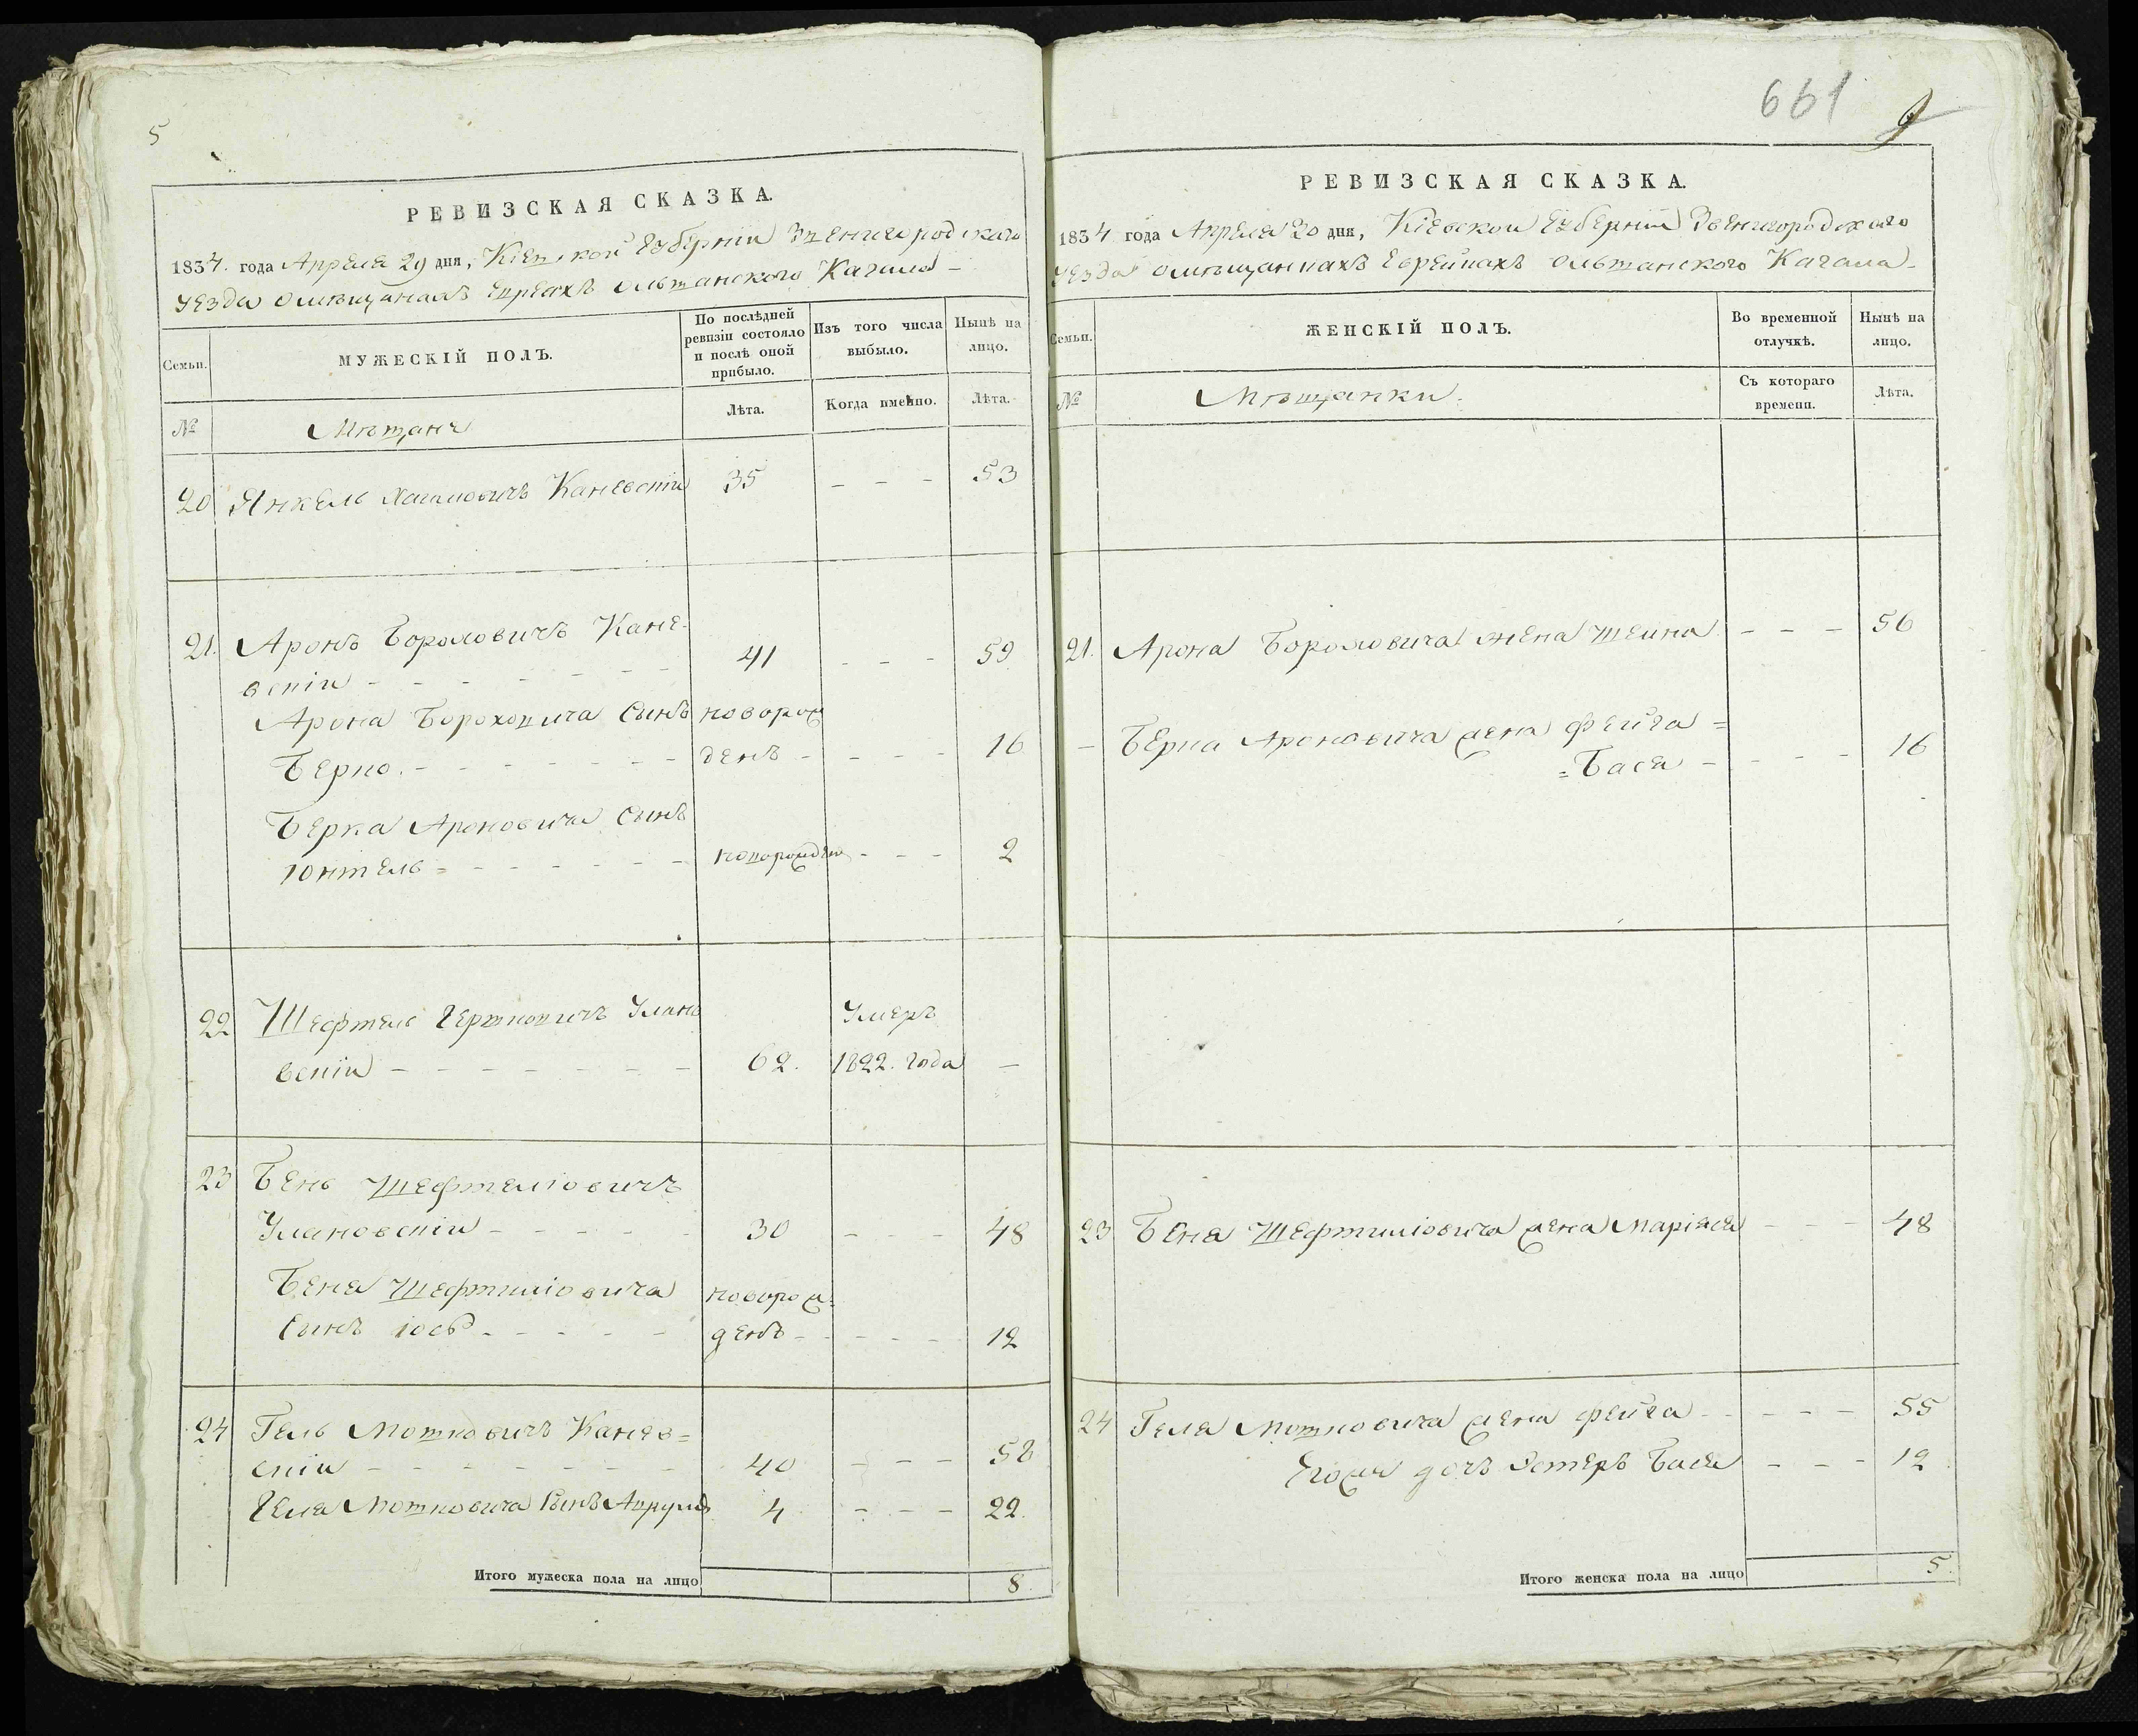 5
РЕВИЗСКАЯ СКАЗКА.
1834. года Апреля 29 дня, Кіевской Губерніи Звенигородскаго
уезда о мѣщанахъ Евреахъ Ольшанского Кагала -
Семьи.
МУЖЕСКІЙ ПОЛЪ.
По послѣдней ревизіи состояло и послѣ оной прибыло.
Изъ того числа выбыло.
Нынѣ на лицо.
№
Мѣщане
Лѣта.
Когда именно.
Лѣта.
20 Янкель Хаимовичъ Каневскій 35 - - - 53
21. Аронъ Бороховичъ Кане-
вскій - - - - - - - 41 - - - 59
Арона Бороховича Сынъ новорож
Берко. - - - - - - - денъ - - - - 16
Берка Ароновича Сынъ
Юнтель = - - - - - - новорожден - - - 2
22 Шефтель Гершковичъ Уланов Умеръ
вскій - - - - - - - 62. 1822. года -
23 Бень Шефтеліовичъ
Улановскій - - - - - 30 - - - 48
Беня Шефтиліовича новорож=
Сынъ Іось - - - - - денъ - - - - 12
24 Гель Мошковичъ Канев=
скій - - - - - - - 40 - - - 58
Геля Мошковича Сынъ Аврумъ 4 - - - 22.
Итого мужеска пола на лицо 8.
661
РЕВИЗСКАЯ СКАЗКА.
1834 года Апреля 20 дня, Кіевской Губерніи Звенигородскаго
уезда о мѣщанкахъ Еврейкахъ Ольшанского Кагала -
Семьи.
ЖЕНСКІЙ ПОЛЪ.
Во временной отлучкѣ.
Нынѣ на лицо.
№
Мѣщанки.
Съ котораго времени.
Лѣта.
21. Арона Бороховича жена Шейна - - - 56
- Берка Ароновича жена Фейга =
=Бася - - - - 16
23 Беня Шефтиліовича жена Маріася - - - 48
24 Геля Мошковича жена Фейга - - - - 55
Егожъ дочь Эстеръ Бася - - - 12
Итого женска пола на лицо 5.